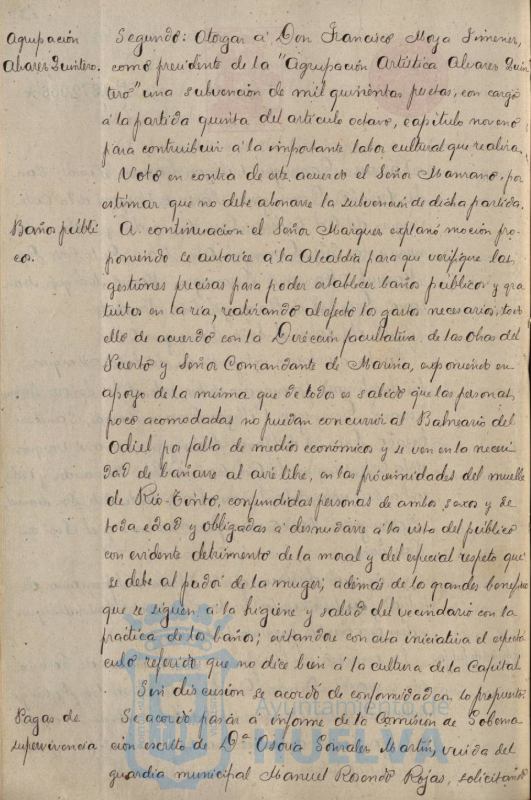 Agrupación
Alvarez Quintero.
Segundo: Otorgar á Don Francisco Moya Jimenez,
como presidente de la "Agrupación Artística Alvarez Quin-
tero" una subvención de mil quinientas pesetas, con cargo
á la partida quinta del artículo octavo, capítulo noveno
para contribuir á la importante labor cultural que realiza.
Votó en contra de este acuerdo el Señor Manzano, por
estimar que no debe abonarse la subvención de dicha partida.
Baños públi-
cos.
A continuacion el Señor Marquez explanó moción pro-
poniendo se autorice á la Alcaldía para que verifique las
gestiones precisas para poder establecer baños públicos y gra-
tuitos en la ría, realizando al efecto los gastos necesarios, todo
ello de acuerdo con la Dirección facultativa de las Obras del
Puerto y Señor Comandante de Marina, exponiendo en
apoyo de la misma que de todos es sabido que las personas
poco acomodadas no puedan concurrir al Balneario del
Odiel por falta de medios económicos y se ven en la necesi-
dad de bañarse al aire libre, en las proximidades del muelle
de Rio-Tinto, confundidas personas de ambos sexos y de
toda edad y obligadas á desnudarse á la vista del público
con evidente detrimento de la moral y del especial respeto que
se debe al pudor de la muger; además de los grandes beneficios
que se siguen á la higiene y salud del vecindario con la
práctica de los baños; evitandose con esta iniciativa el espectá-
culo referido que no dice bien á la cultura de la Capital.
Sin discusión se acordó de conformidad con lo propuesto.
Pagas de
supervivencia
Se acordó pasar á informe de la Comisión de Goberna-
ción escrito de Dª Osoria Gonzales Martin, viuda del
guardia municipal Manuel Rosendo Rojas, solicitando
Ayuntamiento de
HUELVA